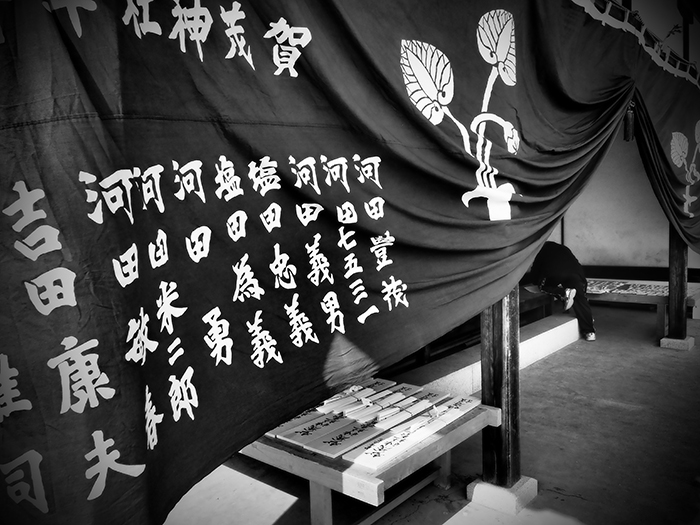 賀茂神社
河田豐茂
河田七五三一
河田義男
塩田忠義
塩田為義
河田勇
河田米二郎
河田敏春
吉田康夫
司